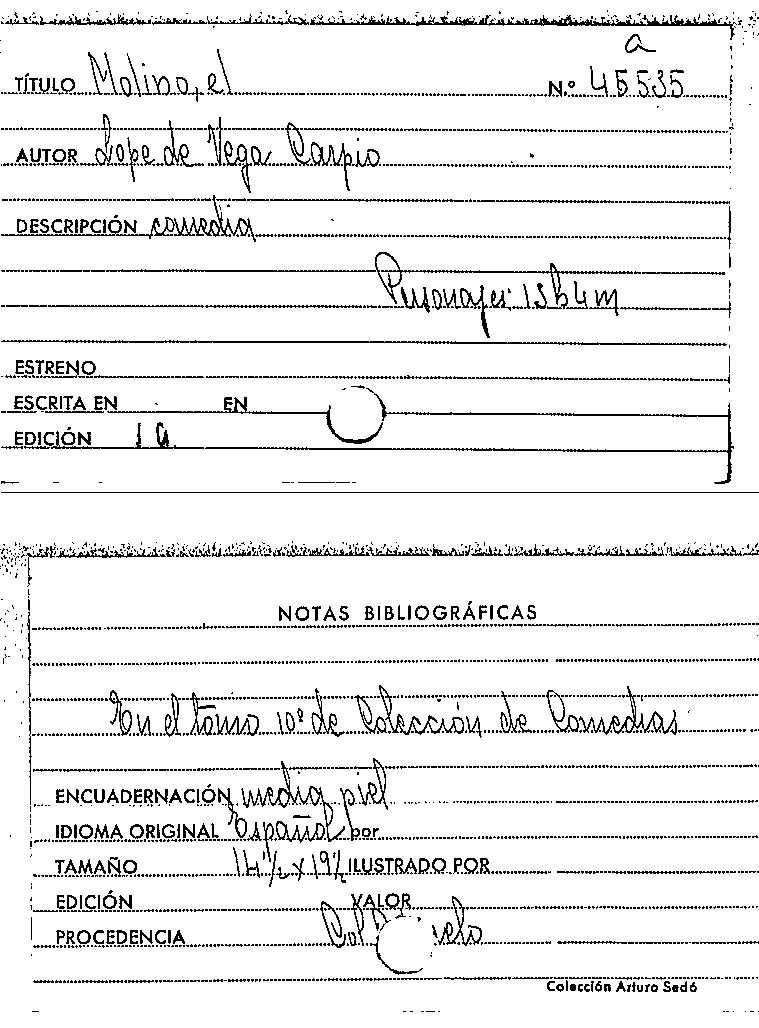 a
TÍTULO Molino, el N.º 45535
AUTOR Lope de Vega Carpio
DESCRIPCIÓN comedia
Personajes: 15h4m
ESTRENO
ESCRITA EN EN
EDICIÓN
NOTAS BIBLIOGRÁFICAS
En el tomo 10º de Colección de Comedias
ENCUADERNACIÓN media piel
IDIOMA ORIGINAL Español por
TAMAÑO 14½ x 19½ ILUSTRADO POR
EDICIÓN VALOR
PROCEDENCIA Col
Colección Arturo Sedó